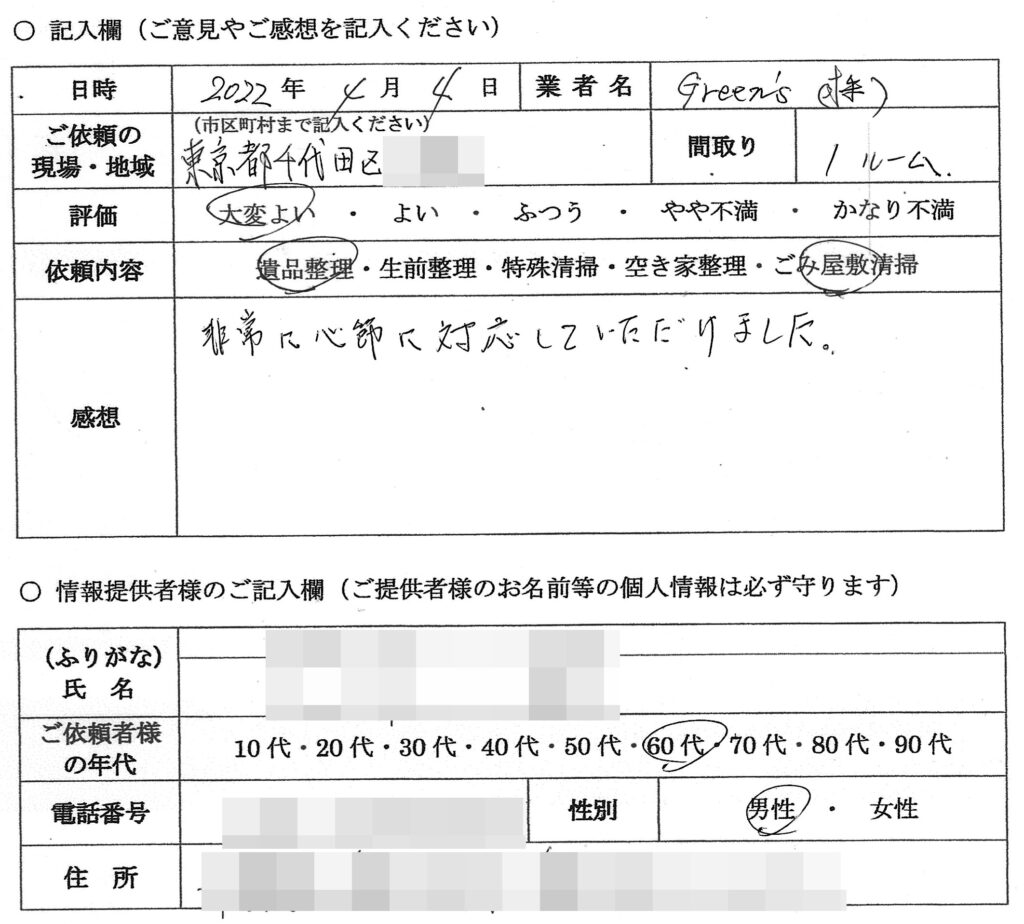 ○ 記入欄（ご意見やご感想を記入ください）
日時 2022年 4月 4日 業者名 Green's (株)
ご依頼の現場・地域 (市区町村まで記入ください) 東京都千代田区 間取り 1 ルーム.
評価 大変よい ・ よい ・ ふつう ・ やや不満 ・ かなり不満
依頼内容 遺品整理・生前整理・特殊清掃・空き家整理・ごみ屋敷清掃
感想 非常に心節に対応していただけました。
○ 情報提供者様のご記入欄（ご提供者様のお名前等の個人情報は必ず守ります）
(ふりがな)
氏 名
ご依頼者様の年代 10代・20代・30代・40代・50代・60代・70代・80代・90代
電話番号 性別 男性 ・ 女性
住 所